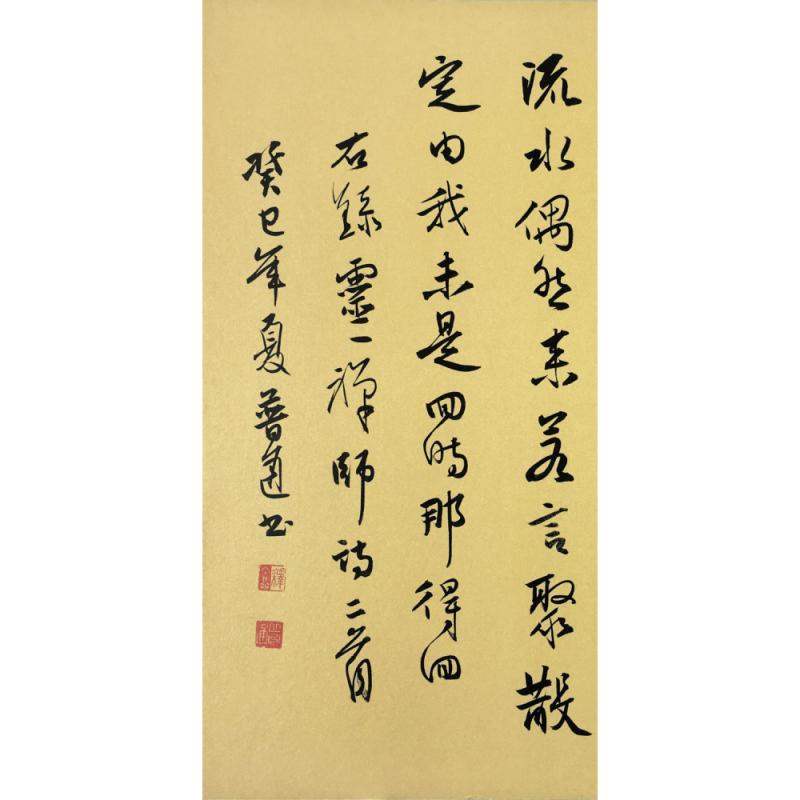 流水偶然来若言聚散
定由我未是回時那得回
右錄靈一禪師詩二首
癸巳年夏普通书